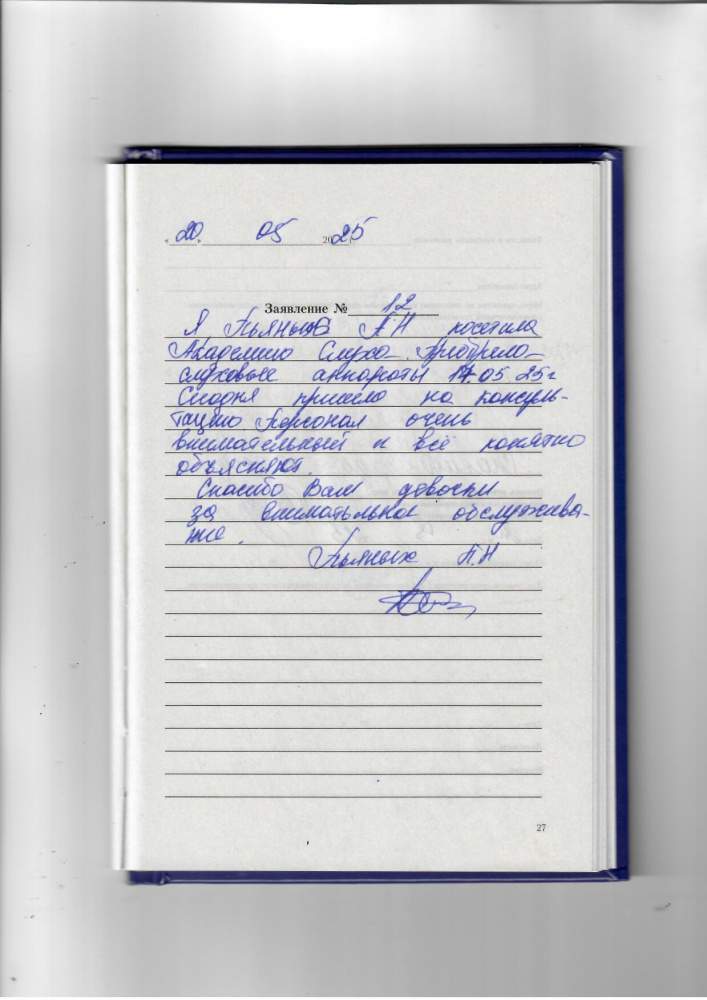 « 20 » 05 2025
Заявление № 12
Я Пьяных АН посетила
Академию Слуха. Приобрела
слуховые аппараты 17.05 25г
Сегодня пришла на консуль-
тацию Персонал очень
внимательный и всё понятно
объясняют.
Спасибо Вам девочки
за внимательное обслужива-
ние.
Пьяных А.Н
27